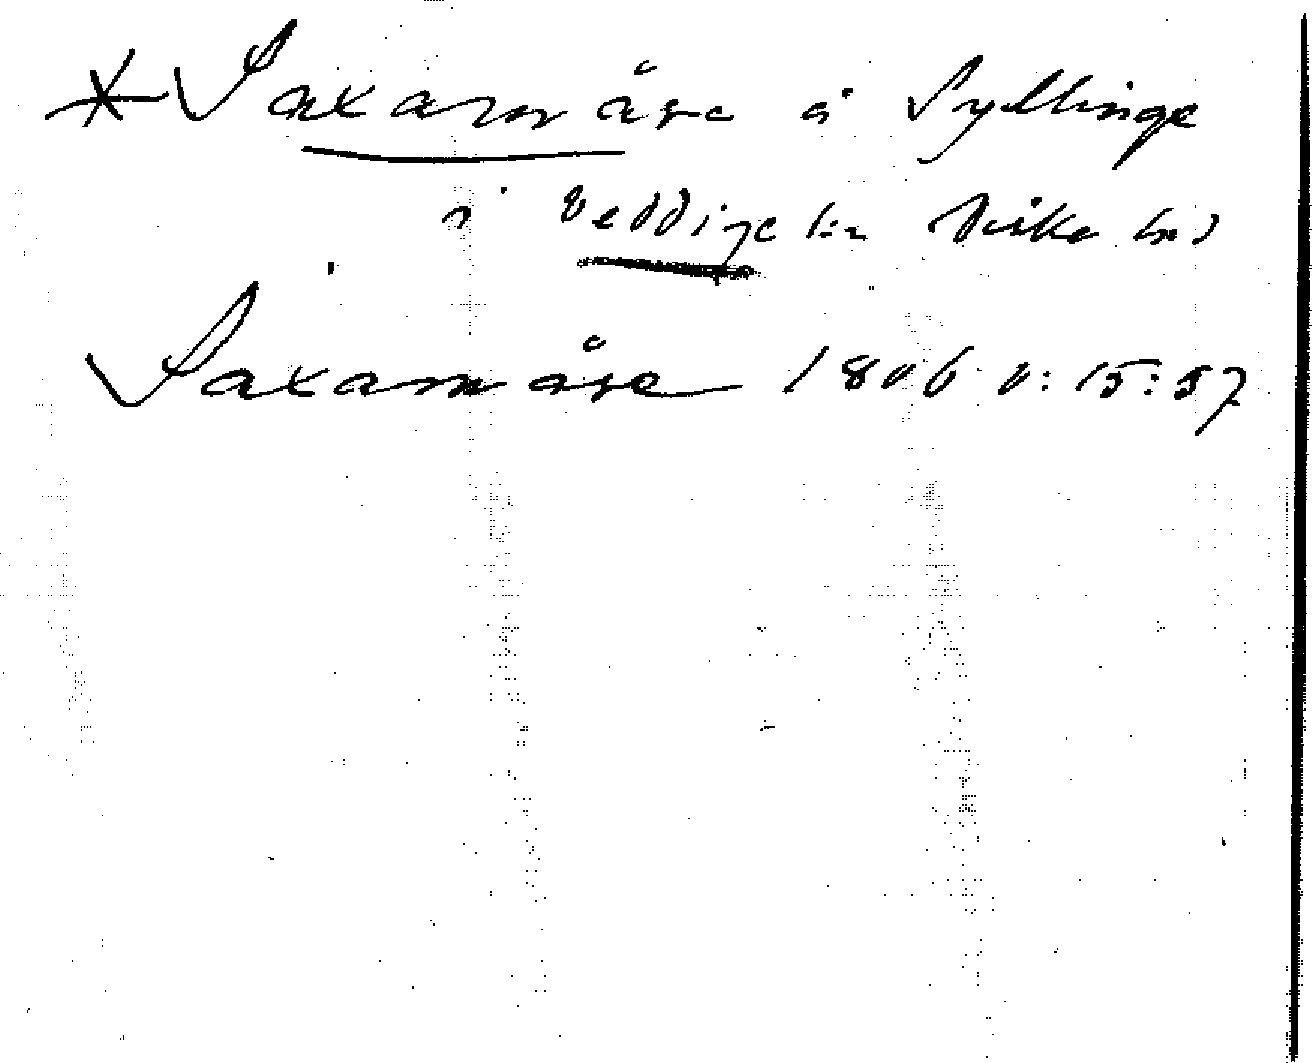 * Saxamåse å Syllinge
i Veddige sn Viske hd
Saxamåse 1806 v: 15: 57